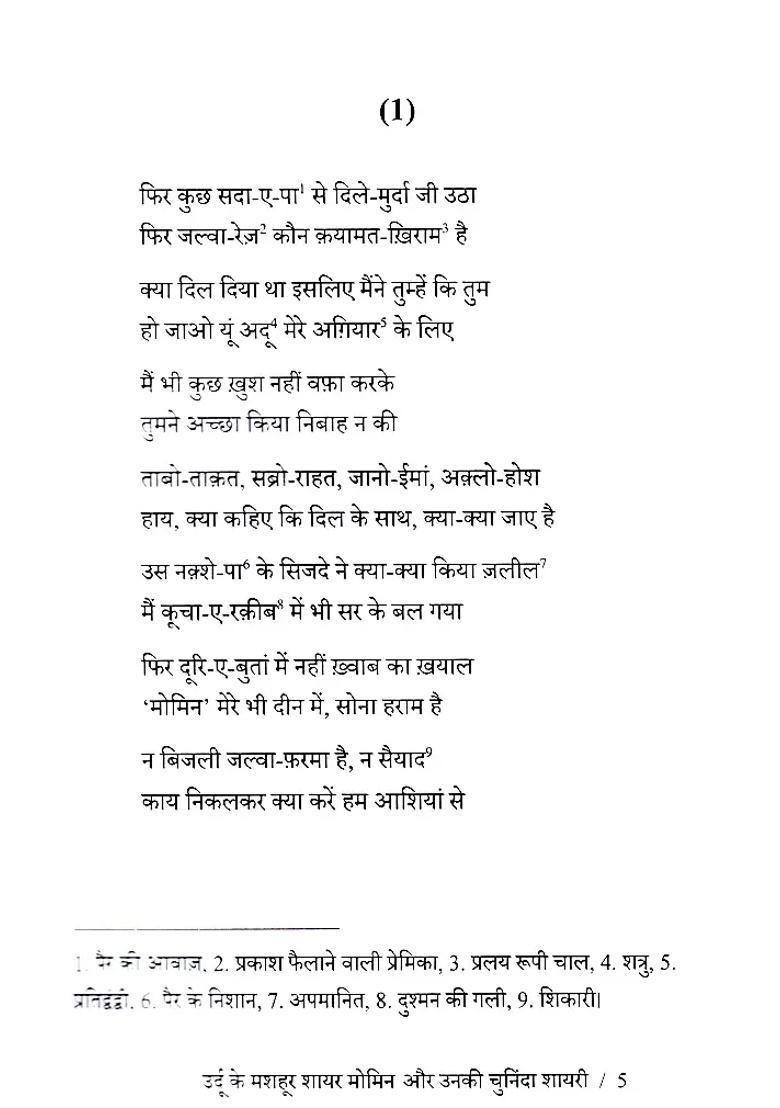 (1)
फिर कुछ सदा-ए-पा¹ से दिले-मुर्दा जी उठा
फिर जल्वा-रेज़² कौन क़यामत-ख़िराम³ है
क्या दिल दिया था इसलिए मैंने तुम्हें कि तुम
हो जाओ यूं अदू⁴ मेरे अग़ियार⁵ के लिए
मैं भी कुछ ख़ुश नहीं वफ़ा करके
तुमने अच्छा किया निबाह न की
ताबो-ताक़त, सब्रो-राहत, जानो-ईमां, अक़्लो-होश
हाय, क्या कहिए कि दिल के साथ, क्या-क्या जाए है
उस नक़्शे-पा⁶ के सिजदे ने क्या-क्या किया ज़लील⁷
मैं कूचा-ए-रक़ीब⁸ में भी सर के बल गया
फिर दूरि-ए-बुतां में नहीं ख़्वाब का ख़याल
‘मोमिन’ मेरे भी दीन में, सोना हराम है
न बिजली जल्वा-फ़रमा है, न सैयाद⁹
काय निकलकर क्या करें हम आशियां से
1. पैर की आवाज़, 2. प्रकाश फैलाने वाली प्रेमिका, 3. प्रलय रूपी चाल, 4. शत्रु, 5.
प्रतिद्वंद्वी, 6. पैर के निशान, 7. अपमानित, 8. दुश्मन की गली, 9. शिकारी।
उर्दू के मशहूर शायर मोमिन और उनकी चुनिंदा शायरी / 5